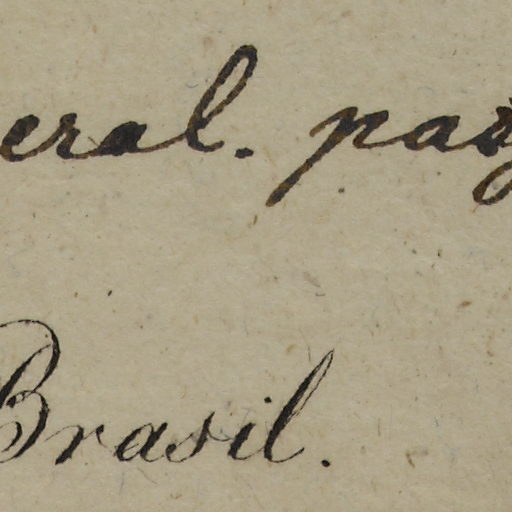 eral. pag
Brasil.